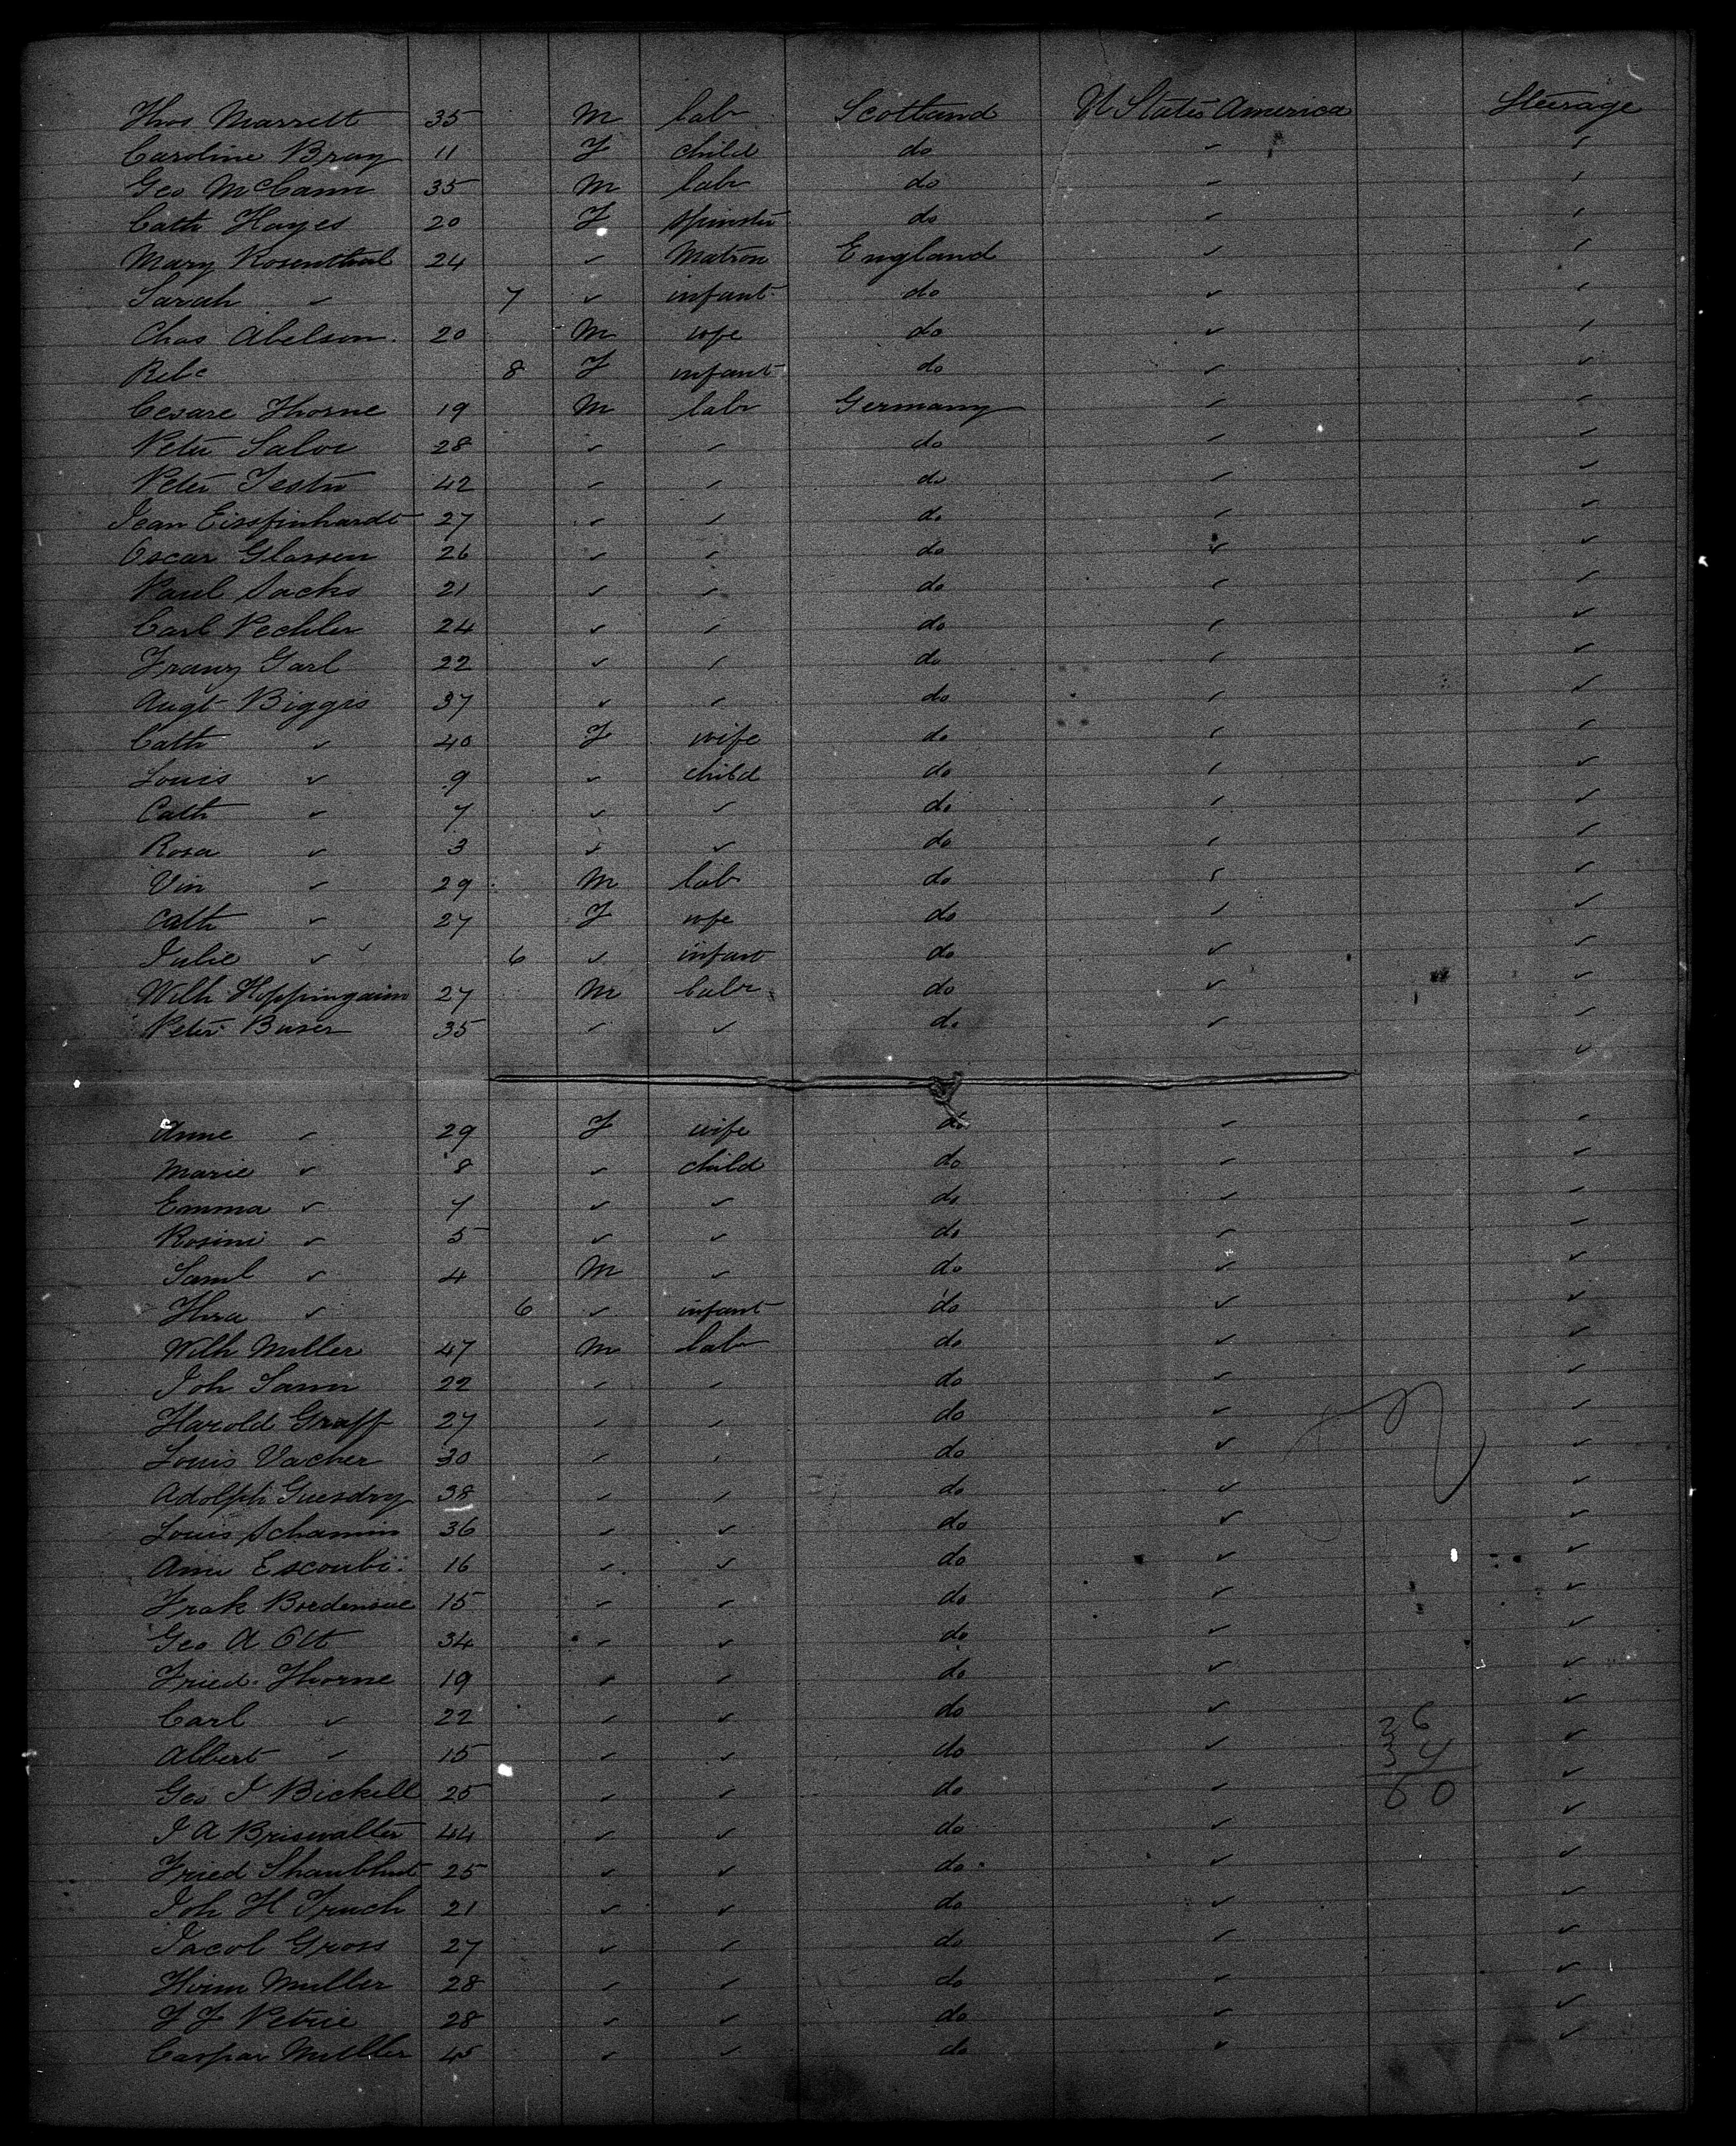 Thos Marrett 35 M labr Scotland U States America Steerage
Caroline Bray 11 F child do ✓ ✓
Geo McCann 35 M labr do ✓ ✓
Cath Hayes 20 F spinster do ✓ ✓
Mary Rosenthal 24 ✓ Matron England ✓ ✓
Sarah ✓ 7 ✓ infant do ✓ ✓
Chas Abelson 20 M wife do ✓ ✓
Reb c 8 F infant do ✓ ✓
Cesare Thorne 19 M labr Germany ✓ ✓
Peter Salve 28 ✓ ✓ do ✓ ✓
Peter 42 ✓ ✓ do ✓ ✓
Jean 27 ✓ ✓ do ✓ ✓
Oscar Glassen 26 ✓ ✓ do ✓ ✓
Paul Sacks 21 ✓ ✓ do ✓ ✓
Carl Pechler 24 ✓ ✓ do ✓ ✓
Franz Garl 22 ✓ ✓ do ✓ ✓
Augt Biggis 37 ✓ ✓ do ✓ ✓
Cath ✓ 40 F wife do ✓ ✓
Louis ✓ 9 ✓ child do ✓ ✓
Cath ✓ 7 ✓ ✓ do ✓ ✓
Rosa ✓ 3 ✓ ✓ do ✓ ✓
Vin ✓ 29 M lab do ✓ ✓
Cath ✓ 27 F wife do ✓ ✓
Julie ✓ 6 ✓ infant do ✓ ✓
Wilh 27 M labr do ✓ ✓
Peter Buser 35 ✓ ✓ do ✓ ✓
✓
Anne ✓ 29 F wife do ✓ ✓
Marie ✓ 8 ✓ child do ✓ ✓
Emma ✓ 7 ✓ ✓ do ✓ ✓
Rosini ✓ 5 ✓ ✓ do ✓ ✓
Saml ✓ 4 M ✓ do ✓ ✓
✓ 6 ✓ infant do ✓ ✓
Wilh Miller 47 M labr do ✓ ✓
Joh Sann 22 ✓ ✓ do ✓ ✓
Harold Graff 27 ✓ ✓ do ✓ ✓
Louis Vacher 30 ✓ ✓ do ✓ ✓
Adolph Guesdry 38 ✓ ✓ do ✓ ✓
Louis Schamin 36 ✓ ✓ do ✓ ✓
Escoubi 16 ✓ ✓ do ✓ ✓
15 ✓ ✓ do ✓ ✓
Geo A Ott 34 ✓ ✓ do ✓ ✓
Fried. Thorne 19 ✓ ✓ do ✓ ✓
Carl ✓ 22 ✓ ✓ do ✓ 26 ✓
Albert ✓ 15 ✓ ✓ do ✓ 34 ✓
Geo J Bickell 25 ✓ ✓ do ✓ 60 ✓
J A Brisevalter 44 ✓ ✓ do ✓ ✓
Fried 25 ✓ ✓ do ✓ ✓
Joh H Truch 21 ✓ ✓ do ✓ ✓
Jacob Gross 27 ✓ ✓ do ✓ ✓
Muller 28 ✓ ✓ do ✓ ✓
F F Petrie 28 ✓ ✓ do ✓ ✓
Caspar Muller 45 ✓ ✓ do ✓ ✓